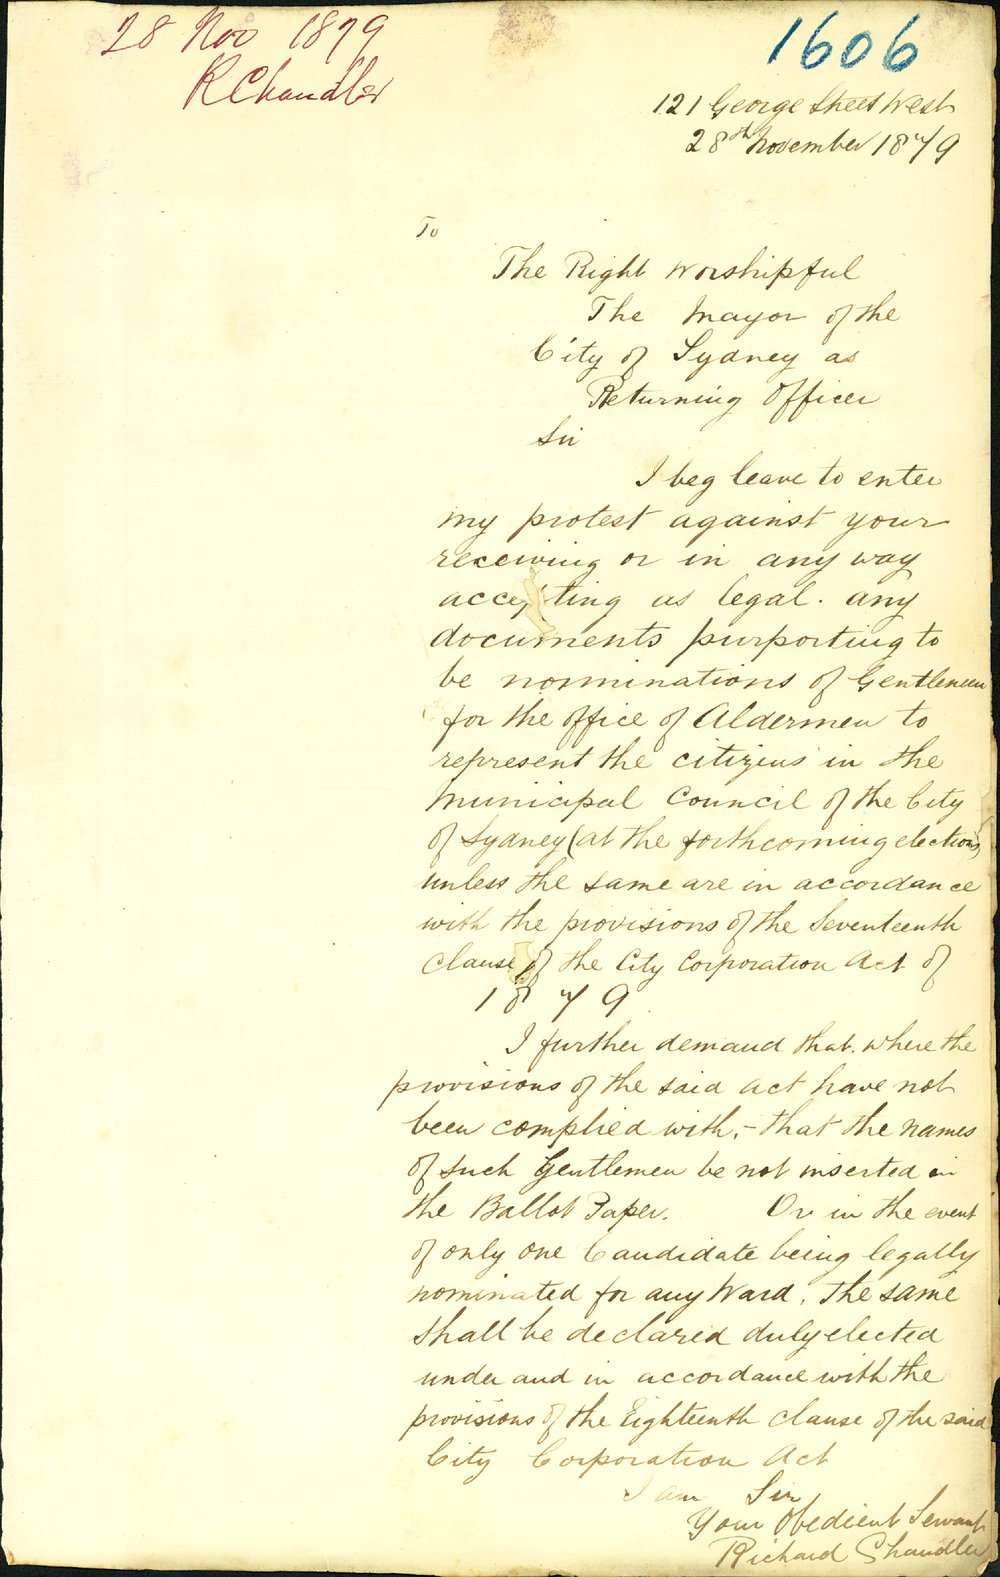 28 Nov 1879
R Chandler
1606
121 George Street West
28th November 1879
To
The Right Worshipful
The Mayor of the
City of Sydney as
Returning Officer
Sir
I beg leave to enter
my protest against your
receiving or in any way
accepting as legal. any
documents purporting to
be nominations of Gentlemen
for the office of Aldermen to
represent the citizens in the
Municipal Council of the City
of Sydney (at the forthcoming elections)
unless the same are in accordance
with the provisions of the Seventeenth
Clause of the City Corporation Act of
1879
I further demand that. where the
provisions of the said Act have not
been complied with,- that the names
of such Gentlemen be not inserted in
the Ballot Paper. Or in the event
of only one Candidate being legally
nominated for any Ward, the same
shall be declared duly elected
under and in accordance with the
provisions of the Eighteenth clause of the said
City Corporation Act
I am Sir
Your Obedient Servant
Richard Chandler